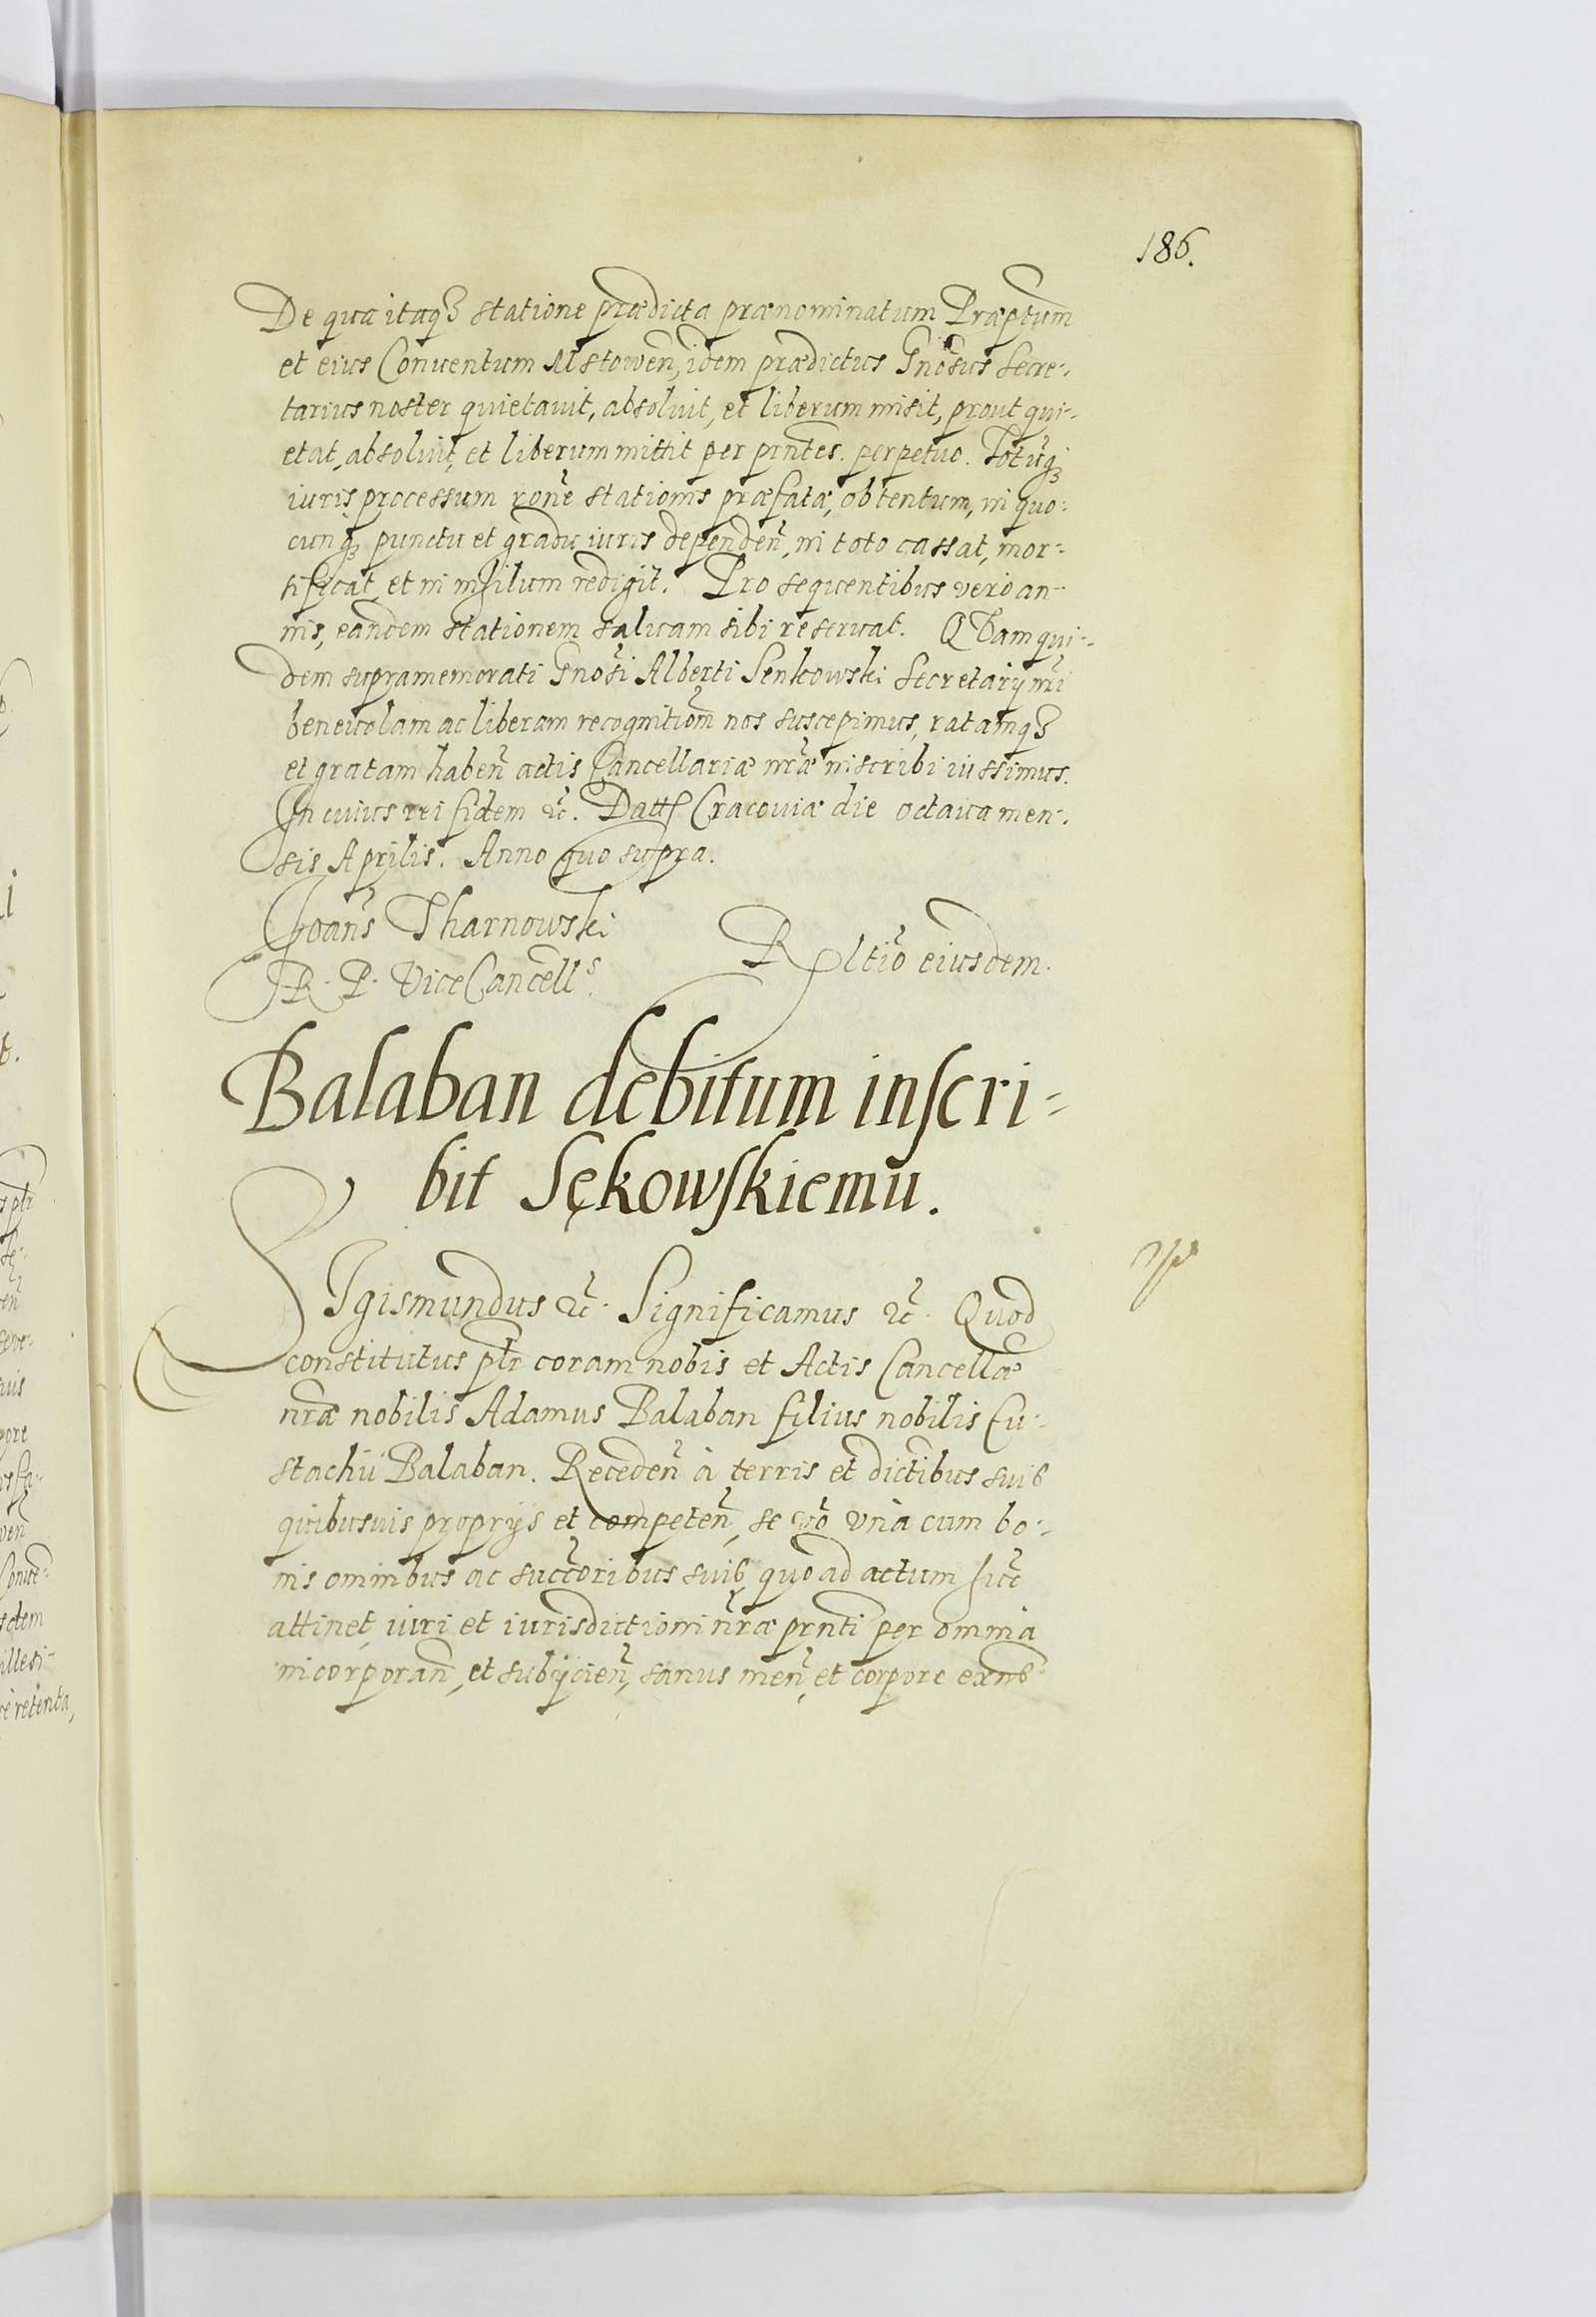 186.
De qua itaq3 statione prædicta prænominatum Præptum
et eius Conuentum Mstowen̄, idem prædictus Gn̄osus Secre-
tarius noster quietauit, absoluit, et liberum misit, prout qui-
etat, absoluit, et liberum mittit per prn̄tes. perpetuo. Totūq3
iuris processum ron̄e stationis præfatæ, obtentum, in quo-
cunq3 punctu et gradu iuris dependen̄, in toto cassat, mor-
tificat, et in nihilum redigit. Pro sequentibus vero an-
nis, eandem stationem saluam sibi reseruat. Q̄uam qui-
dem supramemorati Gn̄osi Alberti Senkowski Secretarij nr̄i
beneuolam ac liberam recognitiom̄ nos suscepimus, ratamq3
et gratam haben̄ actis Cancellariæ nr̄æ inscribi iussimus.
In cuius rei fidem etc̄. Datt Cracouiæ die octaua men-
sis Aprilis. Anno quo supra.
Joan̄s Tharnowski
R. P. ViceCancells.
Rltio eiusdem.
Balaban debitum inscri-
bit Sękowskiemu.
SIgismundus etc̄. Significamus etc̄. Quod
constitutus pltr coram nobis et Actis Cancellæ
nr̄æ nobilis Adamus Balaban filius nobilis Eu-
stachii Balaban. Receden̄ à terris et dictibus suis
quibusuis proprijs et competen̄, se vō unà cum bo-
nis omnibus ac succ̄oribus suis, quo ad actum hunc
attinet, iuri et iurisdictioni nr̄æ prn̄ti per omnia
incorporan̄, et subijcien̄, sanus men̄, et corpore exn̄s